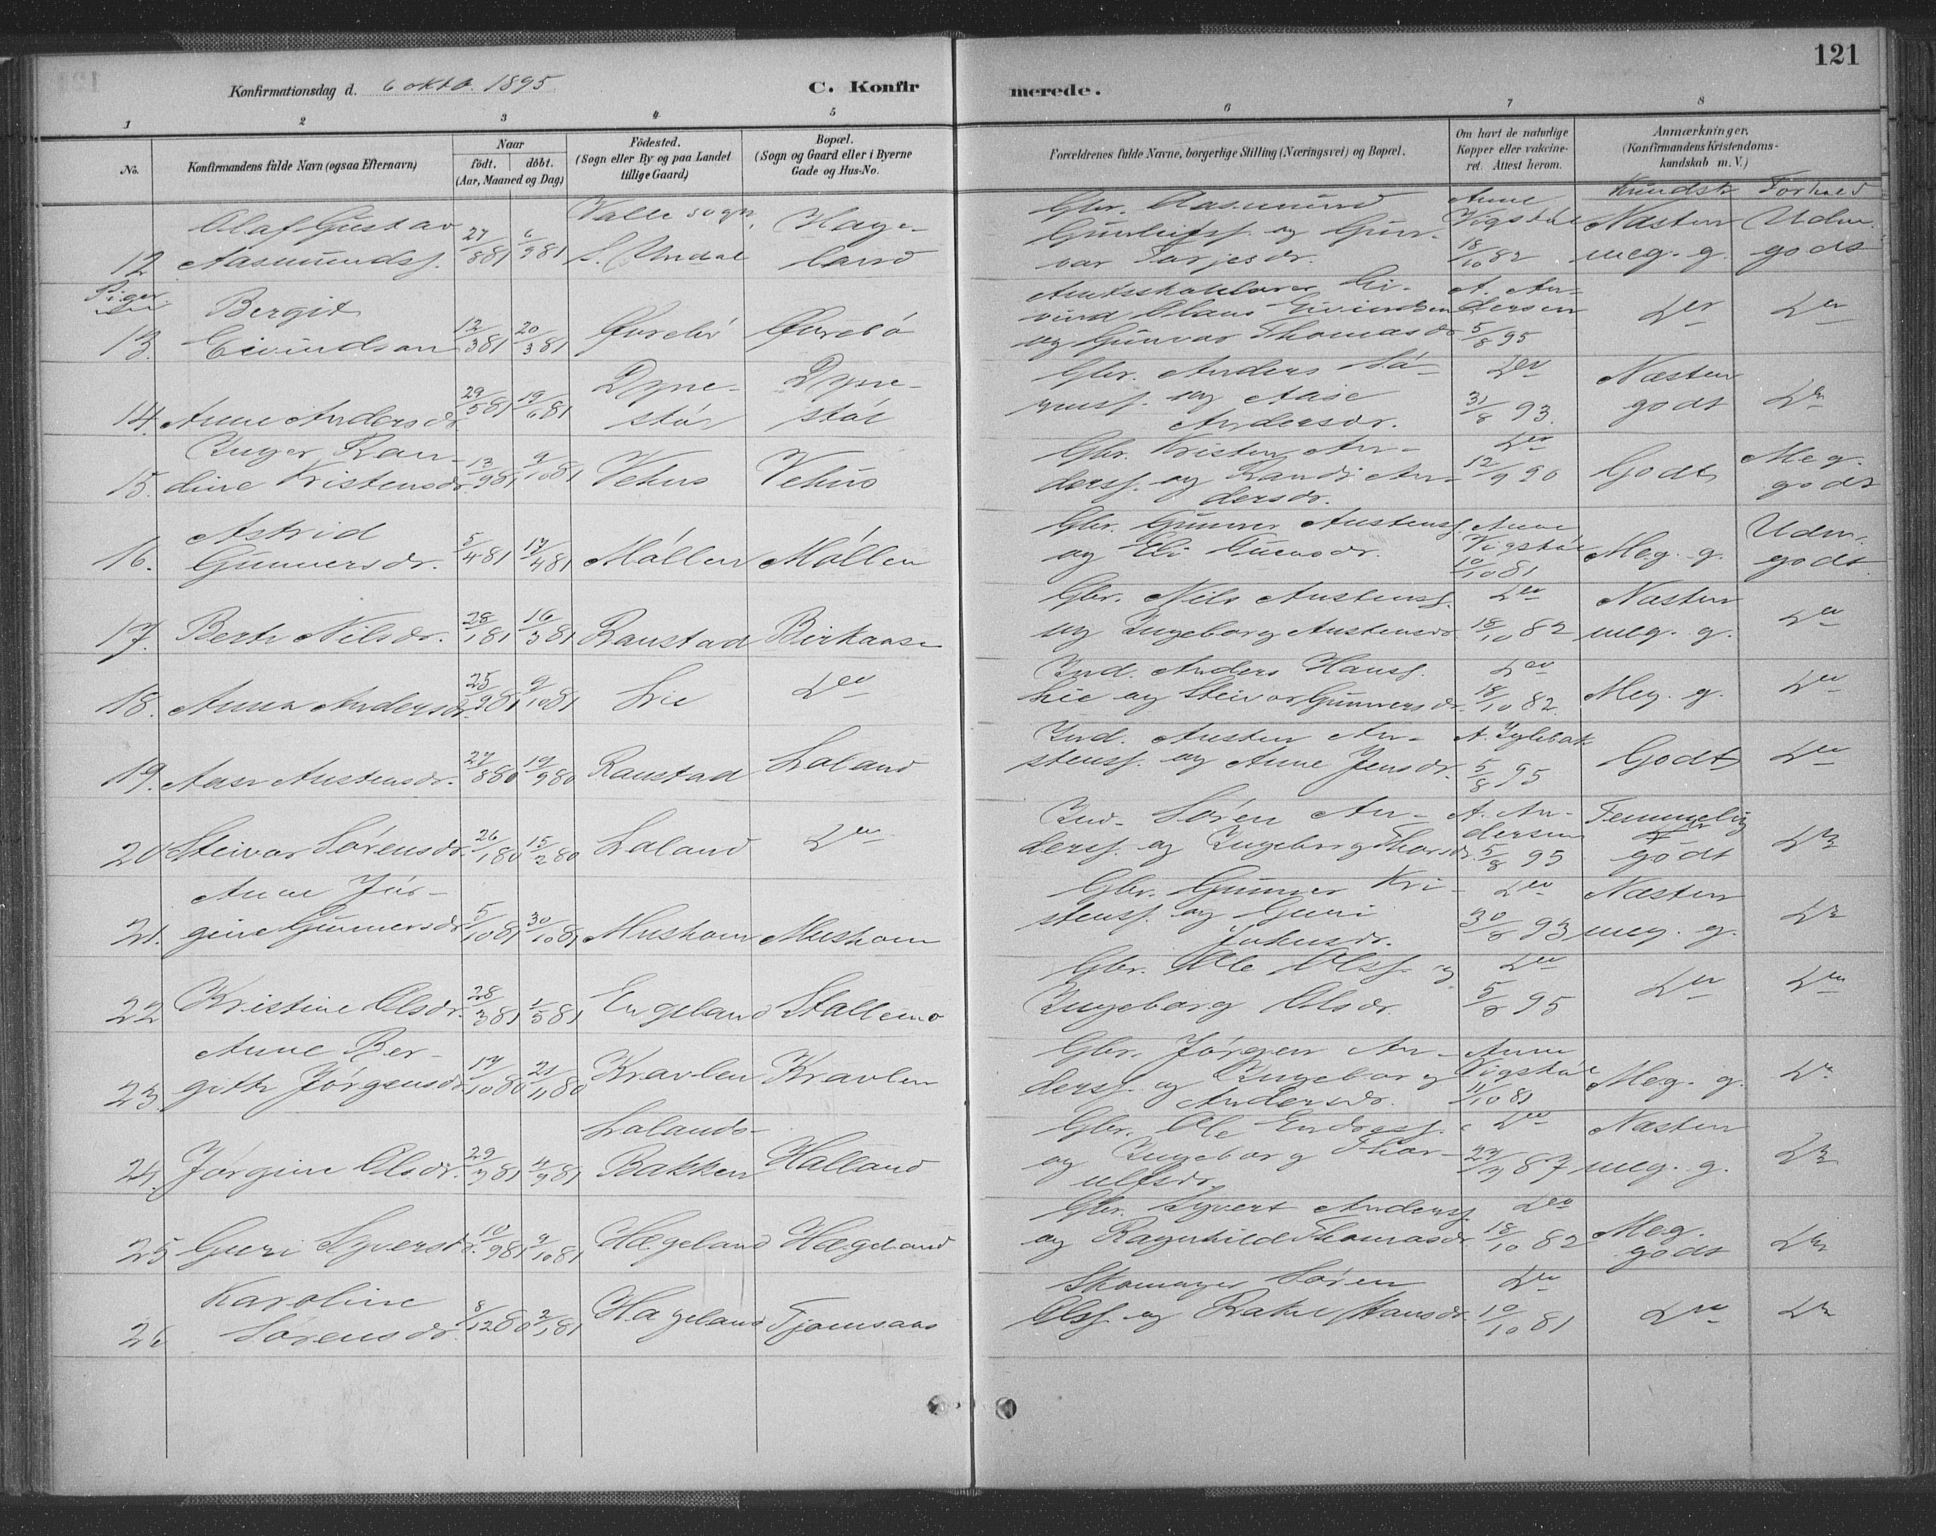 121
Konfirmationsdag d. 6 oktb. 1895 C. Konfirmerede.
1 2 3 4 5 6 7 8
No.
Konfirmandens fulde Navn (ogsaa Efternavn)
Naar
födt. döbt.
(Aar, Maaned og Dag)
Födested.
(Sogn eller By og paa Landet
tillige Gaard)
Bopæl.
(Sogn og Gaard eller i Byerne
Gade og Hus-No.
Forældrenes fulde Navne, borgerlige Stilling (Næringsvei) og Bopæl.
Om havt de naturlige
Kopper eller vakcine-
ret. Attest herom.
Anmærkninger.
(Konfirmandens Kristendoms-
kundskab m. V.)
Kundsk. Forhold
12. Olaf Gustav Aasmundsf. 27/8 81 6/9 81 Valle sogn, S. Undal Hageland Gbr. Aasmund Gunleifsf. og Gunvor Tarjesdr. Anne Vigstöl 18/10 82 Næsten meg. g. Udm. godt
Piger
13. Bergit Eivindsen 12/3 81 20/3 81 Övrebö Övrebö Eivind Olaus Eivindsen og Gunvor Thomasdr. A. Andersen 5/8 95 Do Do
14. Anne Andersdr. 29/5 81 19/6 81 Dynestöl Dynestöl Gbr. Anders og Aase Andersdr. Do 31/8 93. Næsten godt Do
15. Inger Randine Kristensdr. 13/9 81 9/10 81 Vehus Vehus Gbr. Kristen Andersf. og Randi Andersdr. Do 12/9 90 Godt Meg. godt
16. Astrid Gunnersdr. 5/4 81 17/4 81 Möllen Möllen Gbr. Gunner Austensf. og Eli Anne Vigstöl 10/10 81 Meg. g. Udm. godt.
17. Berte Nilsdr. 28/1 81 16/3 81 Ranstad Birkaase Gbr. Nils Austensf. og Ingeborg Austensdr. Do 18/10 82 Næsten meg. g. Do
18. Anna Andersdr. 25/9 81 9/10 81 Lie Do Ind. Anders Hansf. Lie og Steivor Gunnersdr. Do 18/10 82. Meg. g. Do
19. Aase Austensdr. 27/8 80 19/9 80 Ranstad Loland Ind. Austen og Anne Jensdr. 5/8 95 Godt Do
20 Steivor Sörensdr. 26/1 80 15/2 80 Loland Do Ind. Sören Andersf. og Ingeborg Thorsdr. A. Andersen 5/8 95 Temmelig godt Do
21. Anne Jörgine Gunnersdr. 5/10 81 30/10 81 Mushom Mushom Gbr. Gunner Kristensf. og Guri Johnsdr. Do 30/8 93 Næsten meg. g. Do
22 Kristine Olsdr. 28/3 81 1/5 81 Engeland Stallemo Gbr. Ole Olsf. og Ingeborg Olsdr. Do 5/8 95 Do Do
23. Anne Bergitte Jörgensdr. 17/10 80 21/11 80 Kravlen Kravlen Gbr. Jörgen Andersf. og Ingeborg Andersdr. Anne Vigstöl 11/10 81 Meg. g. Do
24. Jörgine Olsdr. 29/7 81 4/9 81 Lolands-Bakken Halland Gbr. Ole og Ingeborg Thorulfsdr. Do 87 Næsten meg. g. Do
25 Guri Syversd. 10/9 81 9/10 81 Hægeland Hægeland Gbr. Syvert Andersf. og Ragnhild Thomasdr. Do 18/10 82 Meg. godt Do
26 Karoline Sörensdr. 8/12 80 2/1 81 Hægeland Tjomsaas Skomager Sören Olsf. og Rakel Hansdr. Do 10/10 81 Do Do